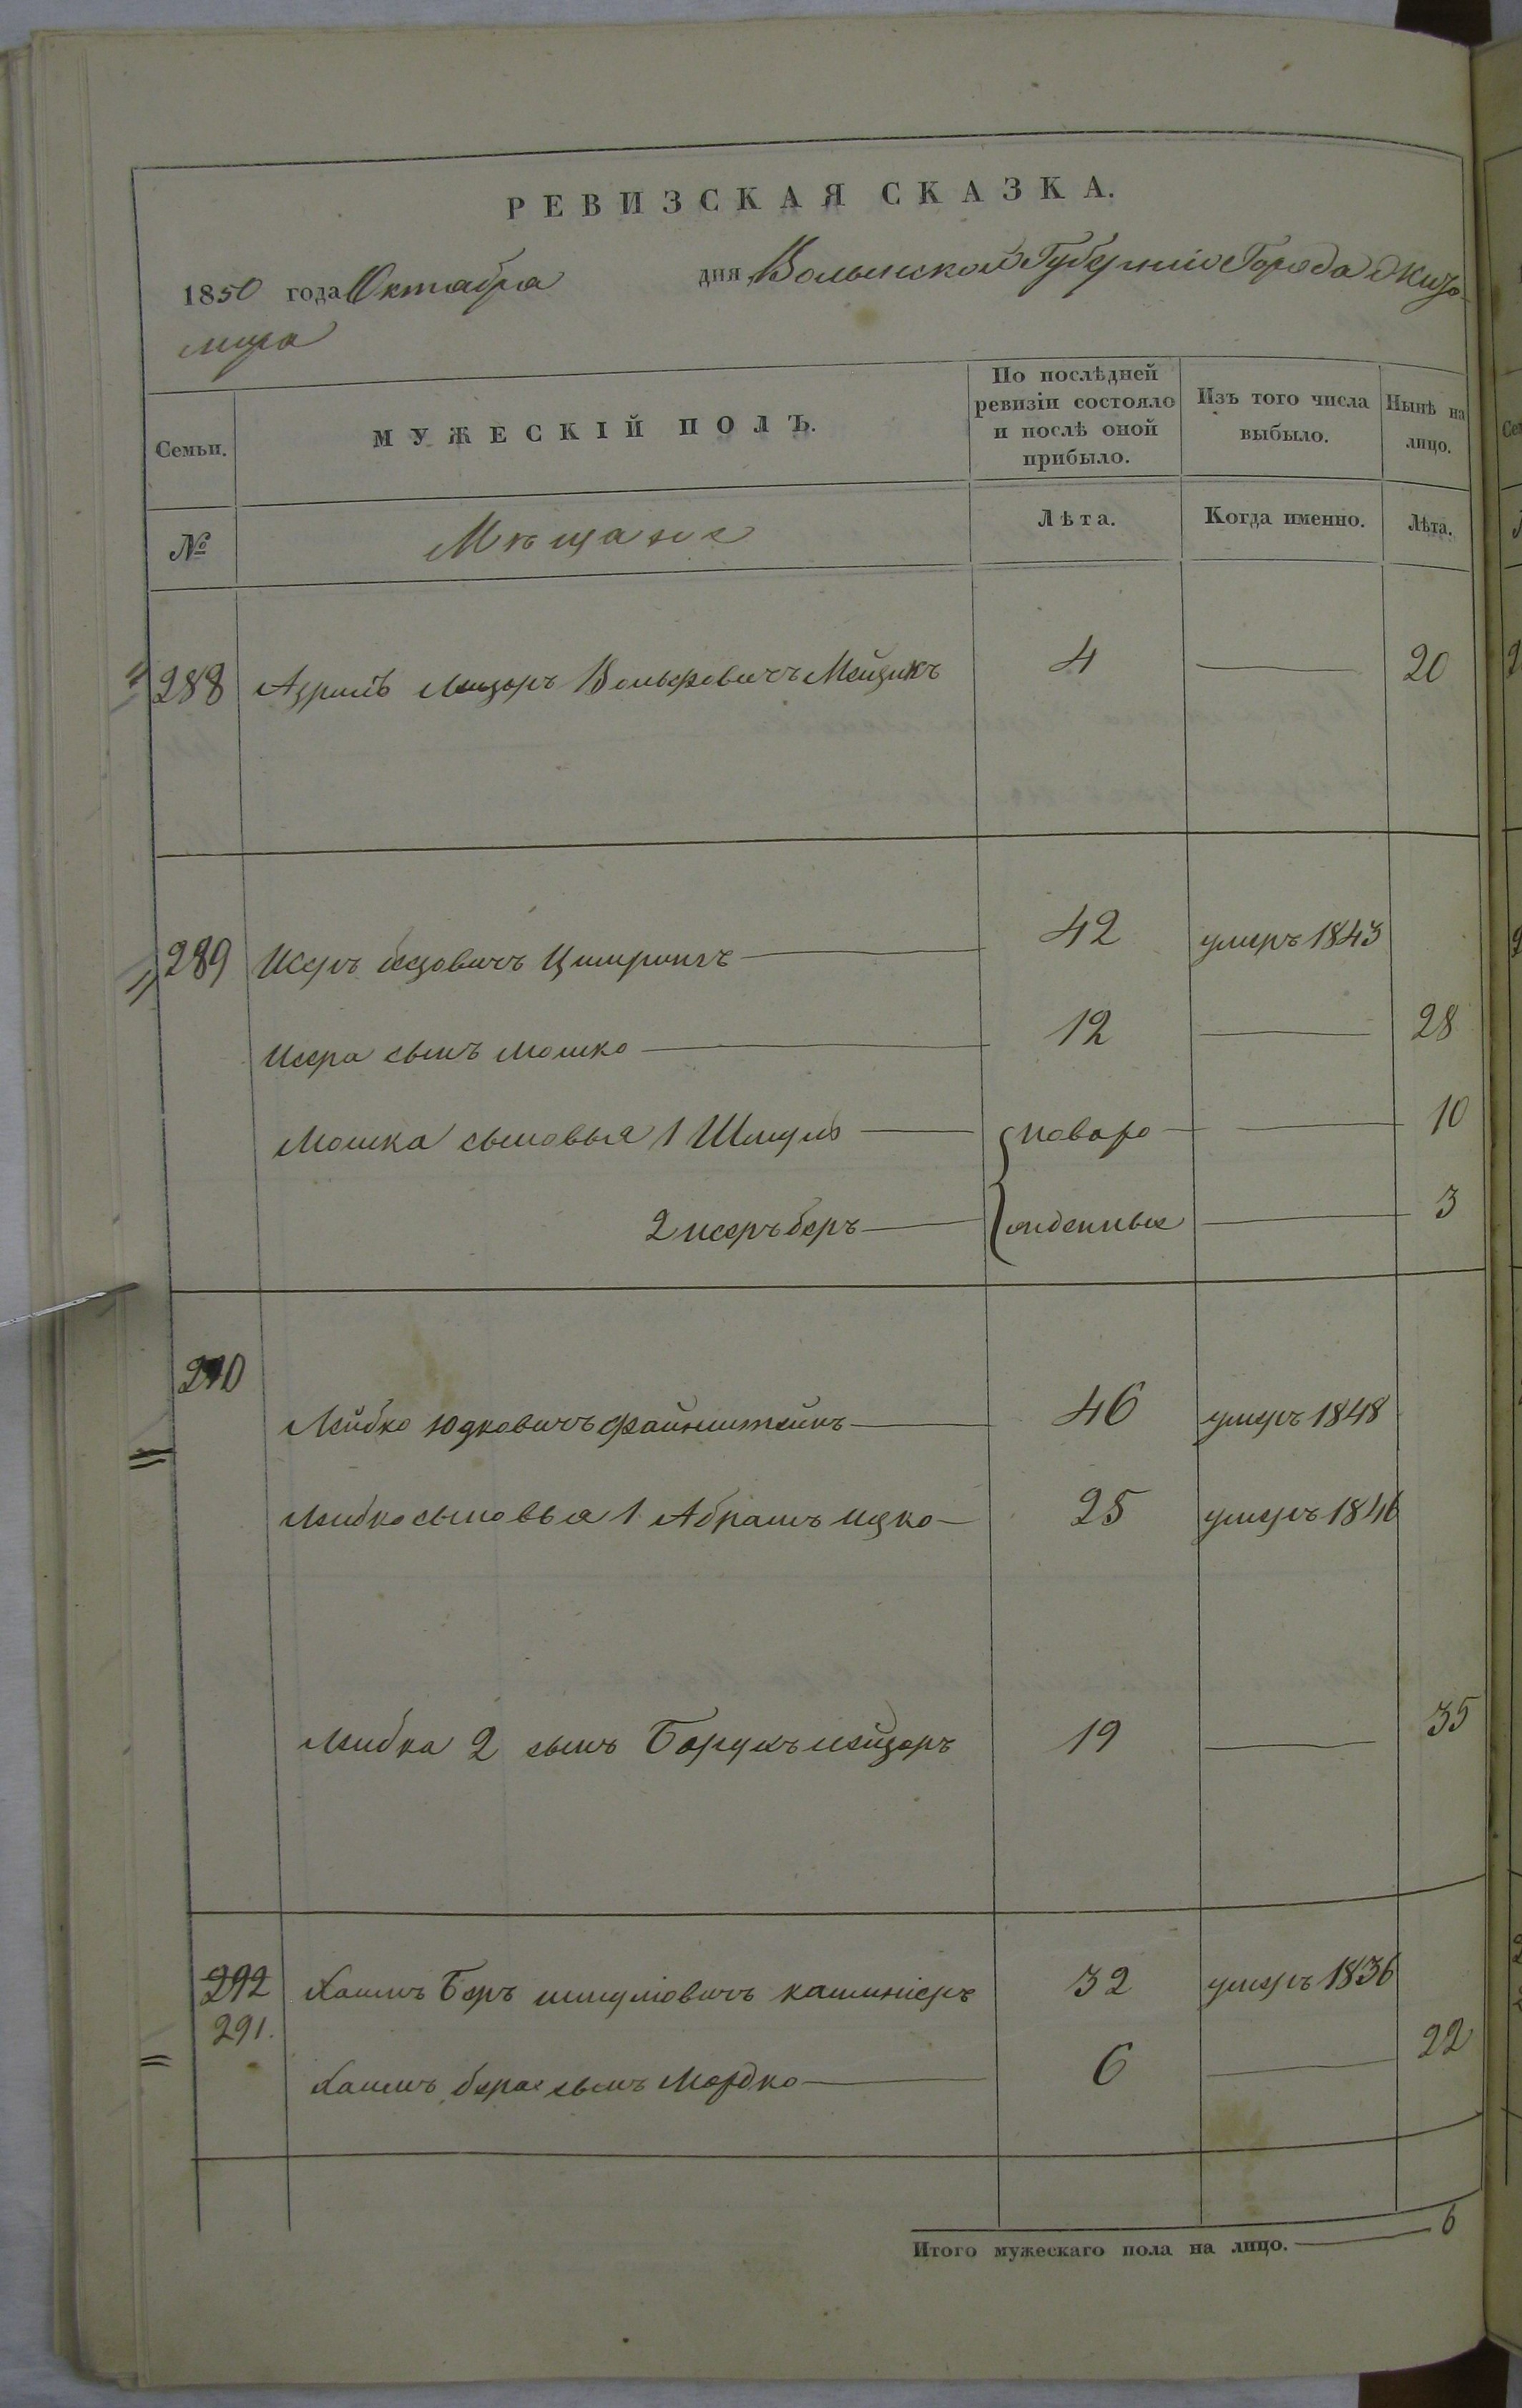 РЕВИЗСКАЯ СКАЗКА.
1850 года Октября дня Волынской Губерніи Города Жито-
мира
Семьи. МУЖЕСКІЙ ПОЛЪ. По послѣдней ревизіи состояло и послѣ оной прибыло. Изъ того числа выбыло. Нынѣ на лицо.
№ Мѣщане Лѣта. Когда именно. Лѣта.
288 Азриль Лейзоръ Вольфовичъ 4 20
289 Исеръ 42 умеръ 1843
Исера сынъ Мошко 12 28
Мошка сыновья 1 Шмуль новоро 10
2 исеръ беръ жденные 3
290 Лейбко Юдковичъ Файнштейнъ 46 умеръ 1848
Лейбко сыновья 1 Абрамъ ицко 25 умеръ 1846
Лейбка 2 сынъ Борухъ лейзоръ 19 35
292 Хаимъ Беръ шмуліовичъ 32 умеръ 1836
291.
Хаимъ бера сынъ Мордко 6 22
Итого мужескаго пола на лицо. 6